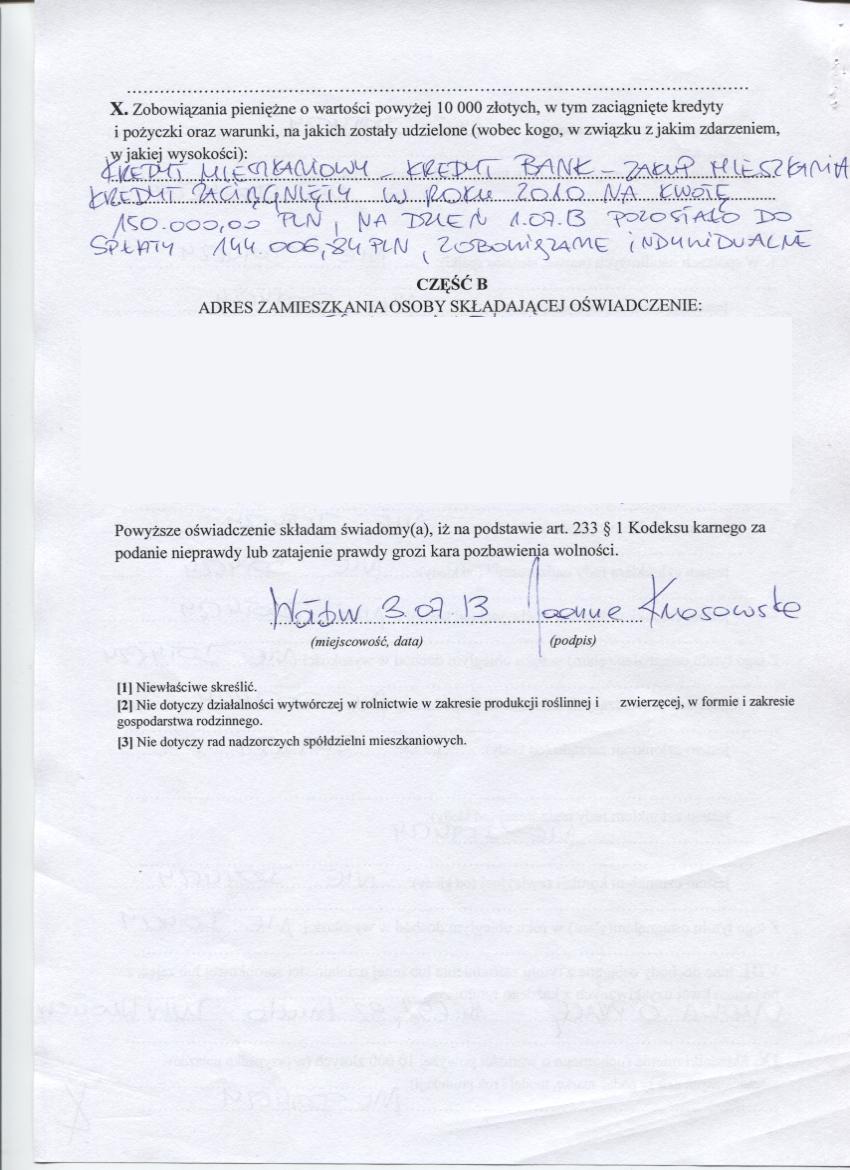 X. Zobowiązania pieniężne o wartości powyżej 10 000 złotych, w tym zaciągnięte kredyty
i pożyczki oraz warunki, na jakich zostały udzielone (wobec kogo, w związku z jakim zdarzeniem,
w jakiej wysokości):
KREDYT MIESZKANIOWY – KREDYT BANK – ZAKUP MIESZKANIA
KREDYT ZACIĄGNIĘTY W ROKU 2010 NA KWOTĘ
150.000,00 PLN, NA DZIEŃ 1.07.13 POZOSTAŁO DO
SPŁATY 144.006,84 PLN, ZOBOWIĄZANIE INDYWIDUALNE
CZĘŚĆ B
ADRES ZAMIESZKANIA OSOBY SKŁADAJĄCEJ OŚWIADCZENIE:
Powyższe oświadczenie składam świadomy(a), iż na podstawie art. 233 § 1 Kodeksu karnego za
podanie nieprawdy lub zatajenie prawdy grozi kara pozbawienia wolności.
Wołów 3.07.13 Joanna Krasowska
(miejscowość, data) (podpis)
[1] Niewłaściwe skreślić.
[2] Nie dotyczy działalności wytwórczej w rolnictwie w zakresie produkcji roślinnej i zwierzęcej, w formie i zakresie
gospodarstwa rodzinnego.
[3] Nie dotyczy rad nadzorczych spółdzielni mieszkaniowych.